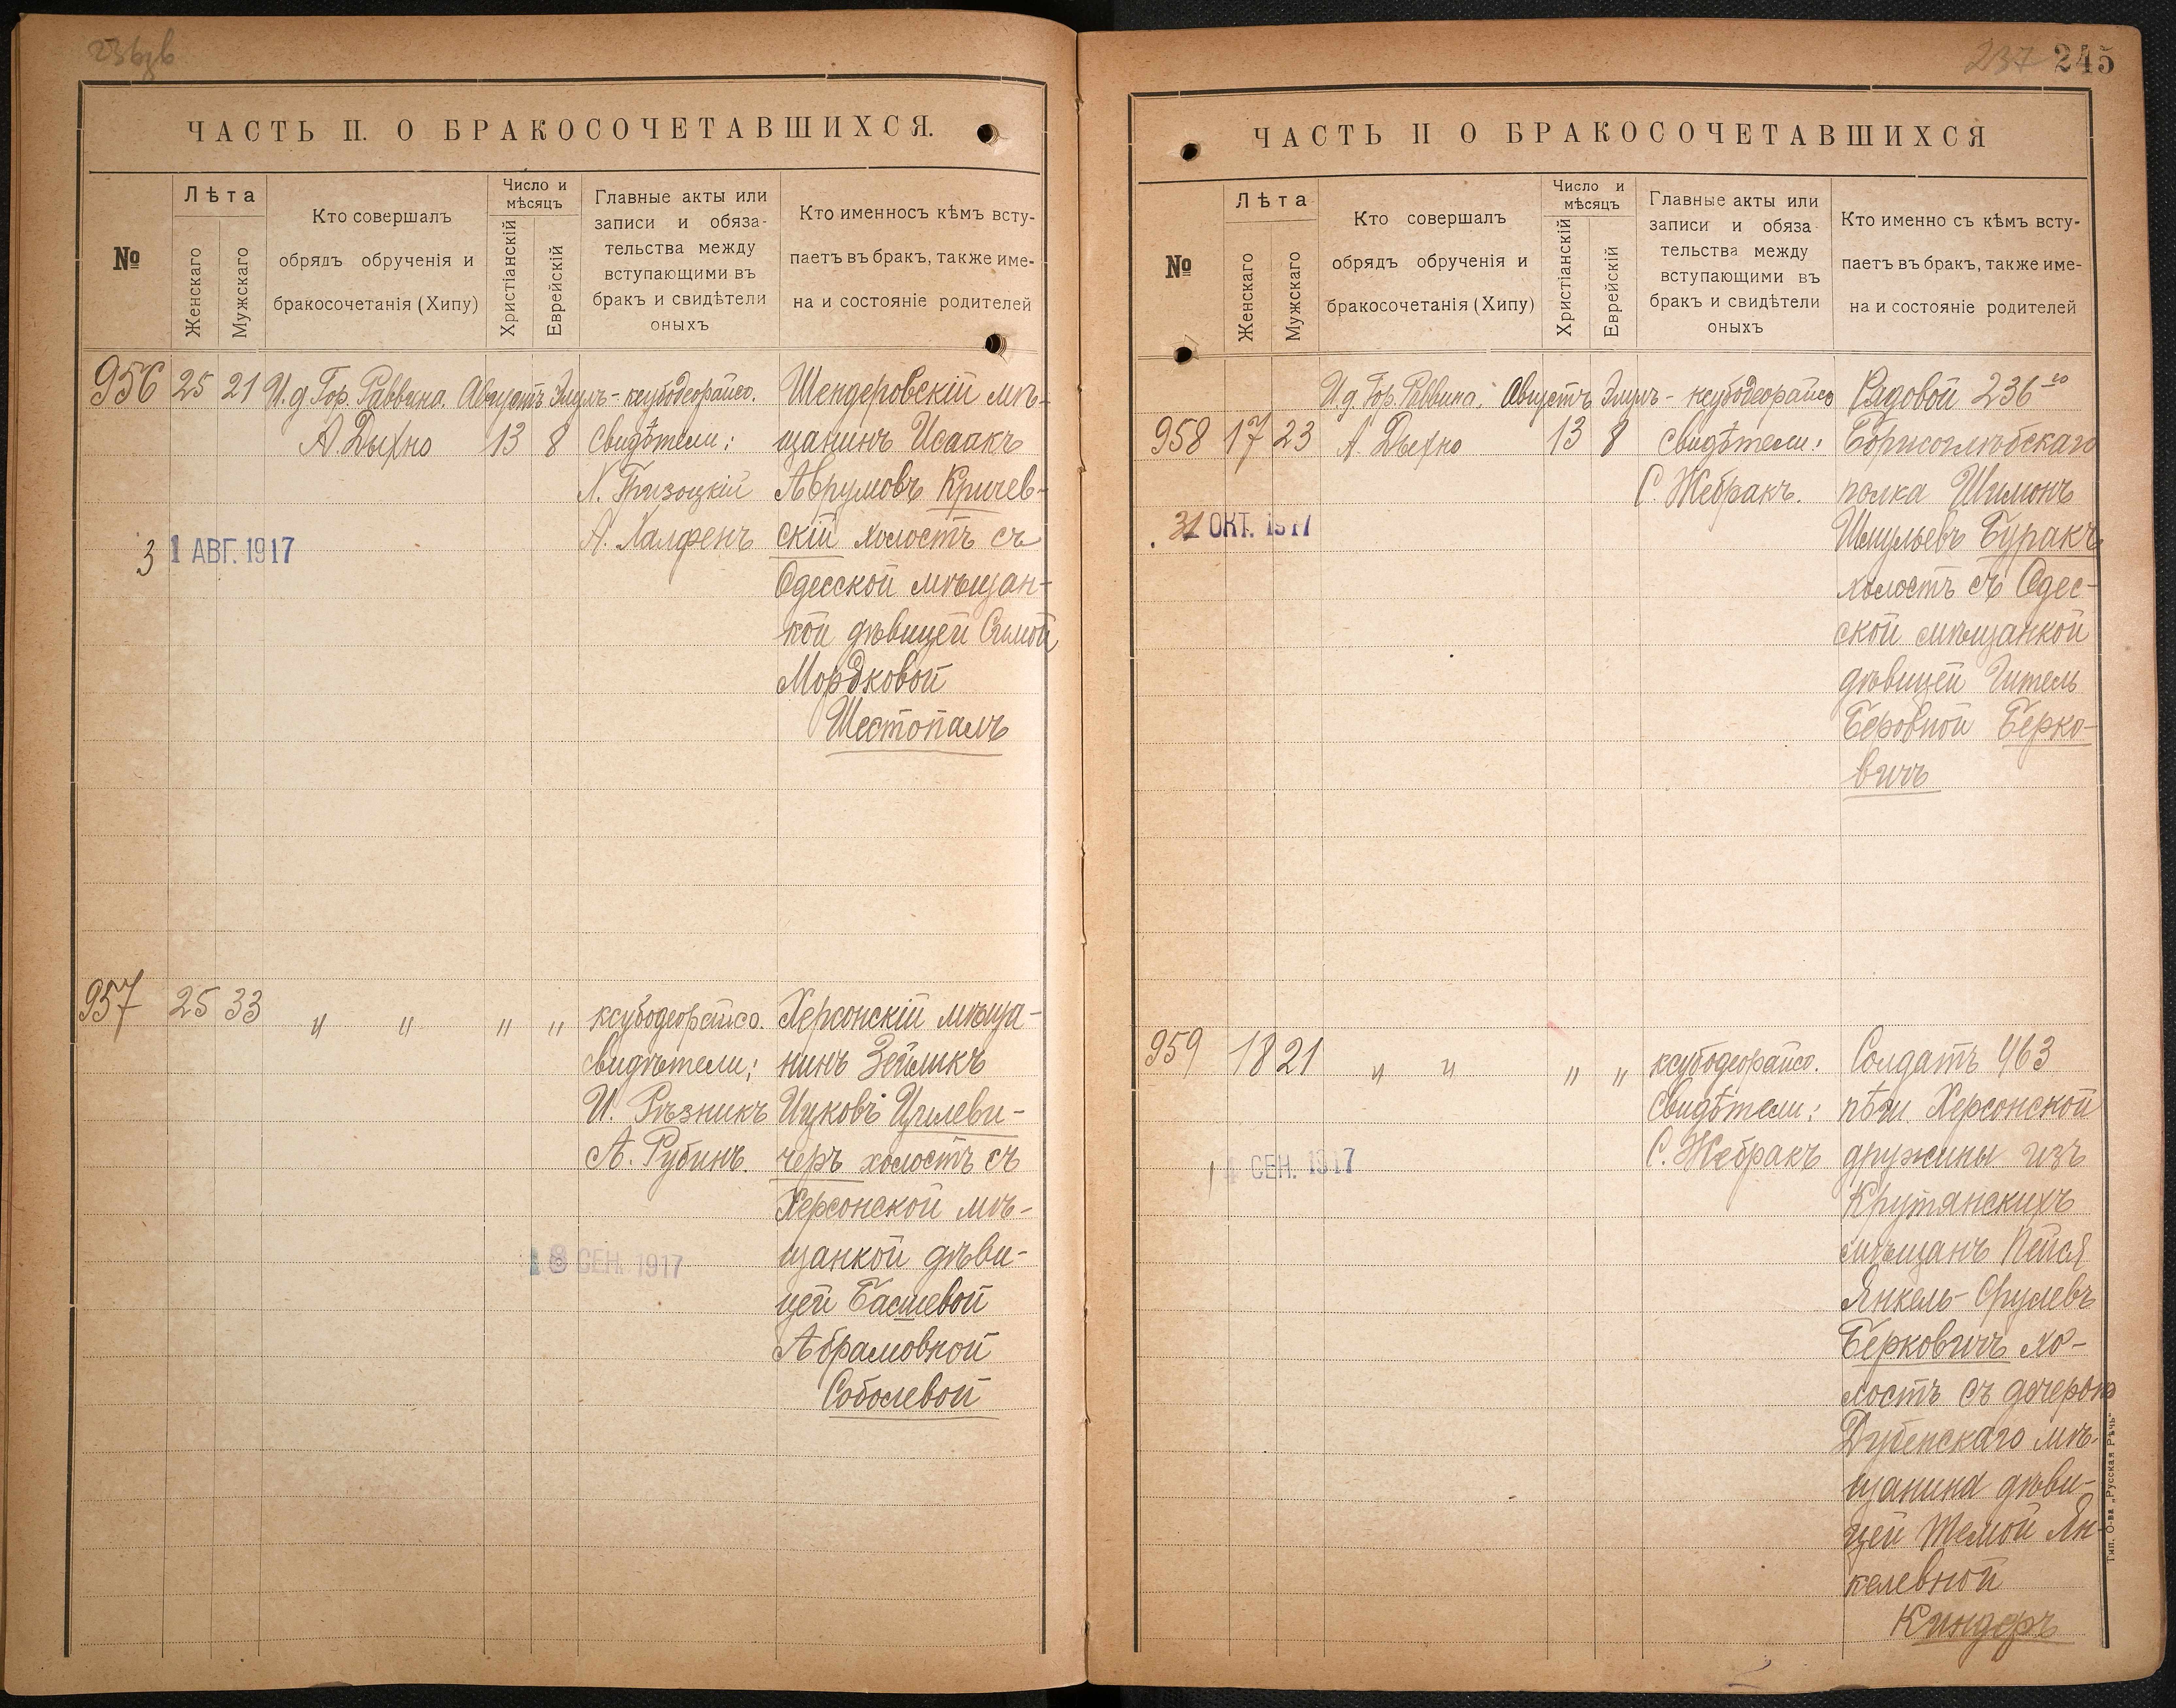 ЧАСТЬ II. О БРАКОСОЧЕТАВШИХСЯ.
№
Лѣта
Женскаго
Мужскаго
Кто совершалъ
обрядъ обрученія и
бракосочетанія (Хипу)
Число и
мѣсяцъ
Христіанскій
Еврейскій
Главные акты или
записи и обяза-
тельства между
вступающими въ
бракъ и свидѣтели
оныхъ
Кто именносъ кѣмъ всту-
паетъ въ бракъ, также име-
на и состояніе родителей
956 25 21 И. д Гор. Раввина. Августъ Элулъ - ксубодеорайсо.
А. Дыхно 13 8 свидѣтели:
А. Халфенъ
Шендеровскій мѣ-
щанинъ Исаакъ
Аврумовъ Кричев-
скій холостъ съ
Одесской мѣщан-
кой дѣвицей Симой
Мордковой
Шестопалъ
31 АВГ. 1917
957 25 33 " " " " ксубодеорайсо.
свидѣтели:
И. Рѣзникъ
А. Рубинъ.
Херсонскій мѣща-
нинъ Зейликъ
Ицковъ Цилеви-
черъ холостъ съ
Херсонской мѣ-
щанкой дѣви-
цей Басшевой
Абрамовной
Соболевой
18 СЕН. 1917
237 245
ЧАСТЬ II О БРАКОСОЧЕТАВШИХСЯ
№
Лѣта
Женскаго
Мужскаго
Кто совершалъ
обрядъ обрученія и
бракосочетанія (Хипу)
Число и
мѣсяцъ
Христіанскій
Еврейскій
Главные акты или
записи и обяза-
тельства между
вступающими въ
бракъ и свидѣтели
оныхъ
Кто именно съ кѣмъ всту-
паетъ въ бракъ, также име-
на и состояніе родителей
И. д Гор. Раввина. Августъ Элулъ - ксубодеорайсо
958 17 23 А. Дыхно 13 8 свидѣтели:
С. Жебракъ.
Рядовой 236го
Борисоглѣбскаго
полка Шимонъ
Шмульевъ Буракъ
холостъ съ Одес-
ской мѣщанкой
дѣвицей Гитель
Беровной Берко-
вичъ
31 ОКТ. 1917
959 18 21 " " " " ксубодеорайсо.
Свидѣтели:
С. Жебракъ
Солдатъ 463
пѣш. Херсонской
дружины изъ
Крутянскихъ
мѣщанъ Пейся
Янкель Срулевъ
Берковичъ хо-
лостъ съ дочерью
Дубенскаго мѣ-
щанина дѣви-
цей Темой Ян-
келевной
Киндеръ
14 СЕН. 1917
Тип. О-ва „Русская Рѣчь"